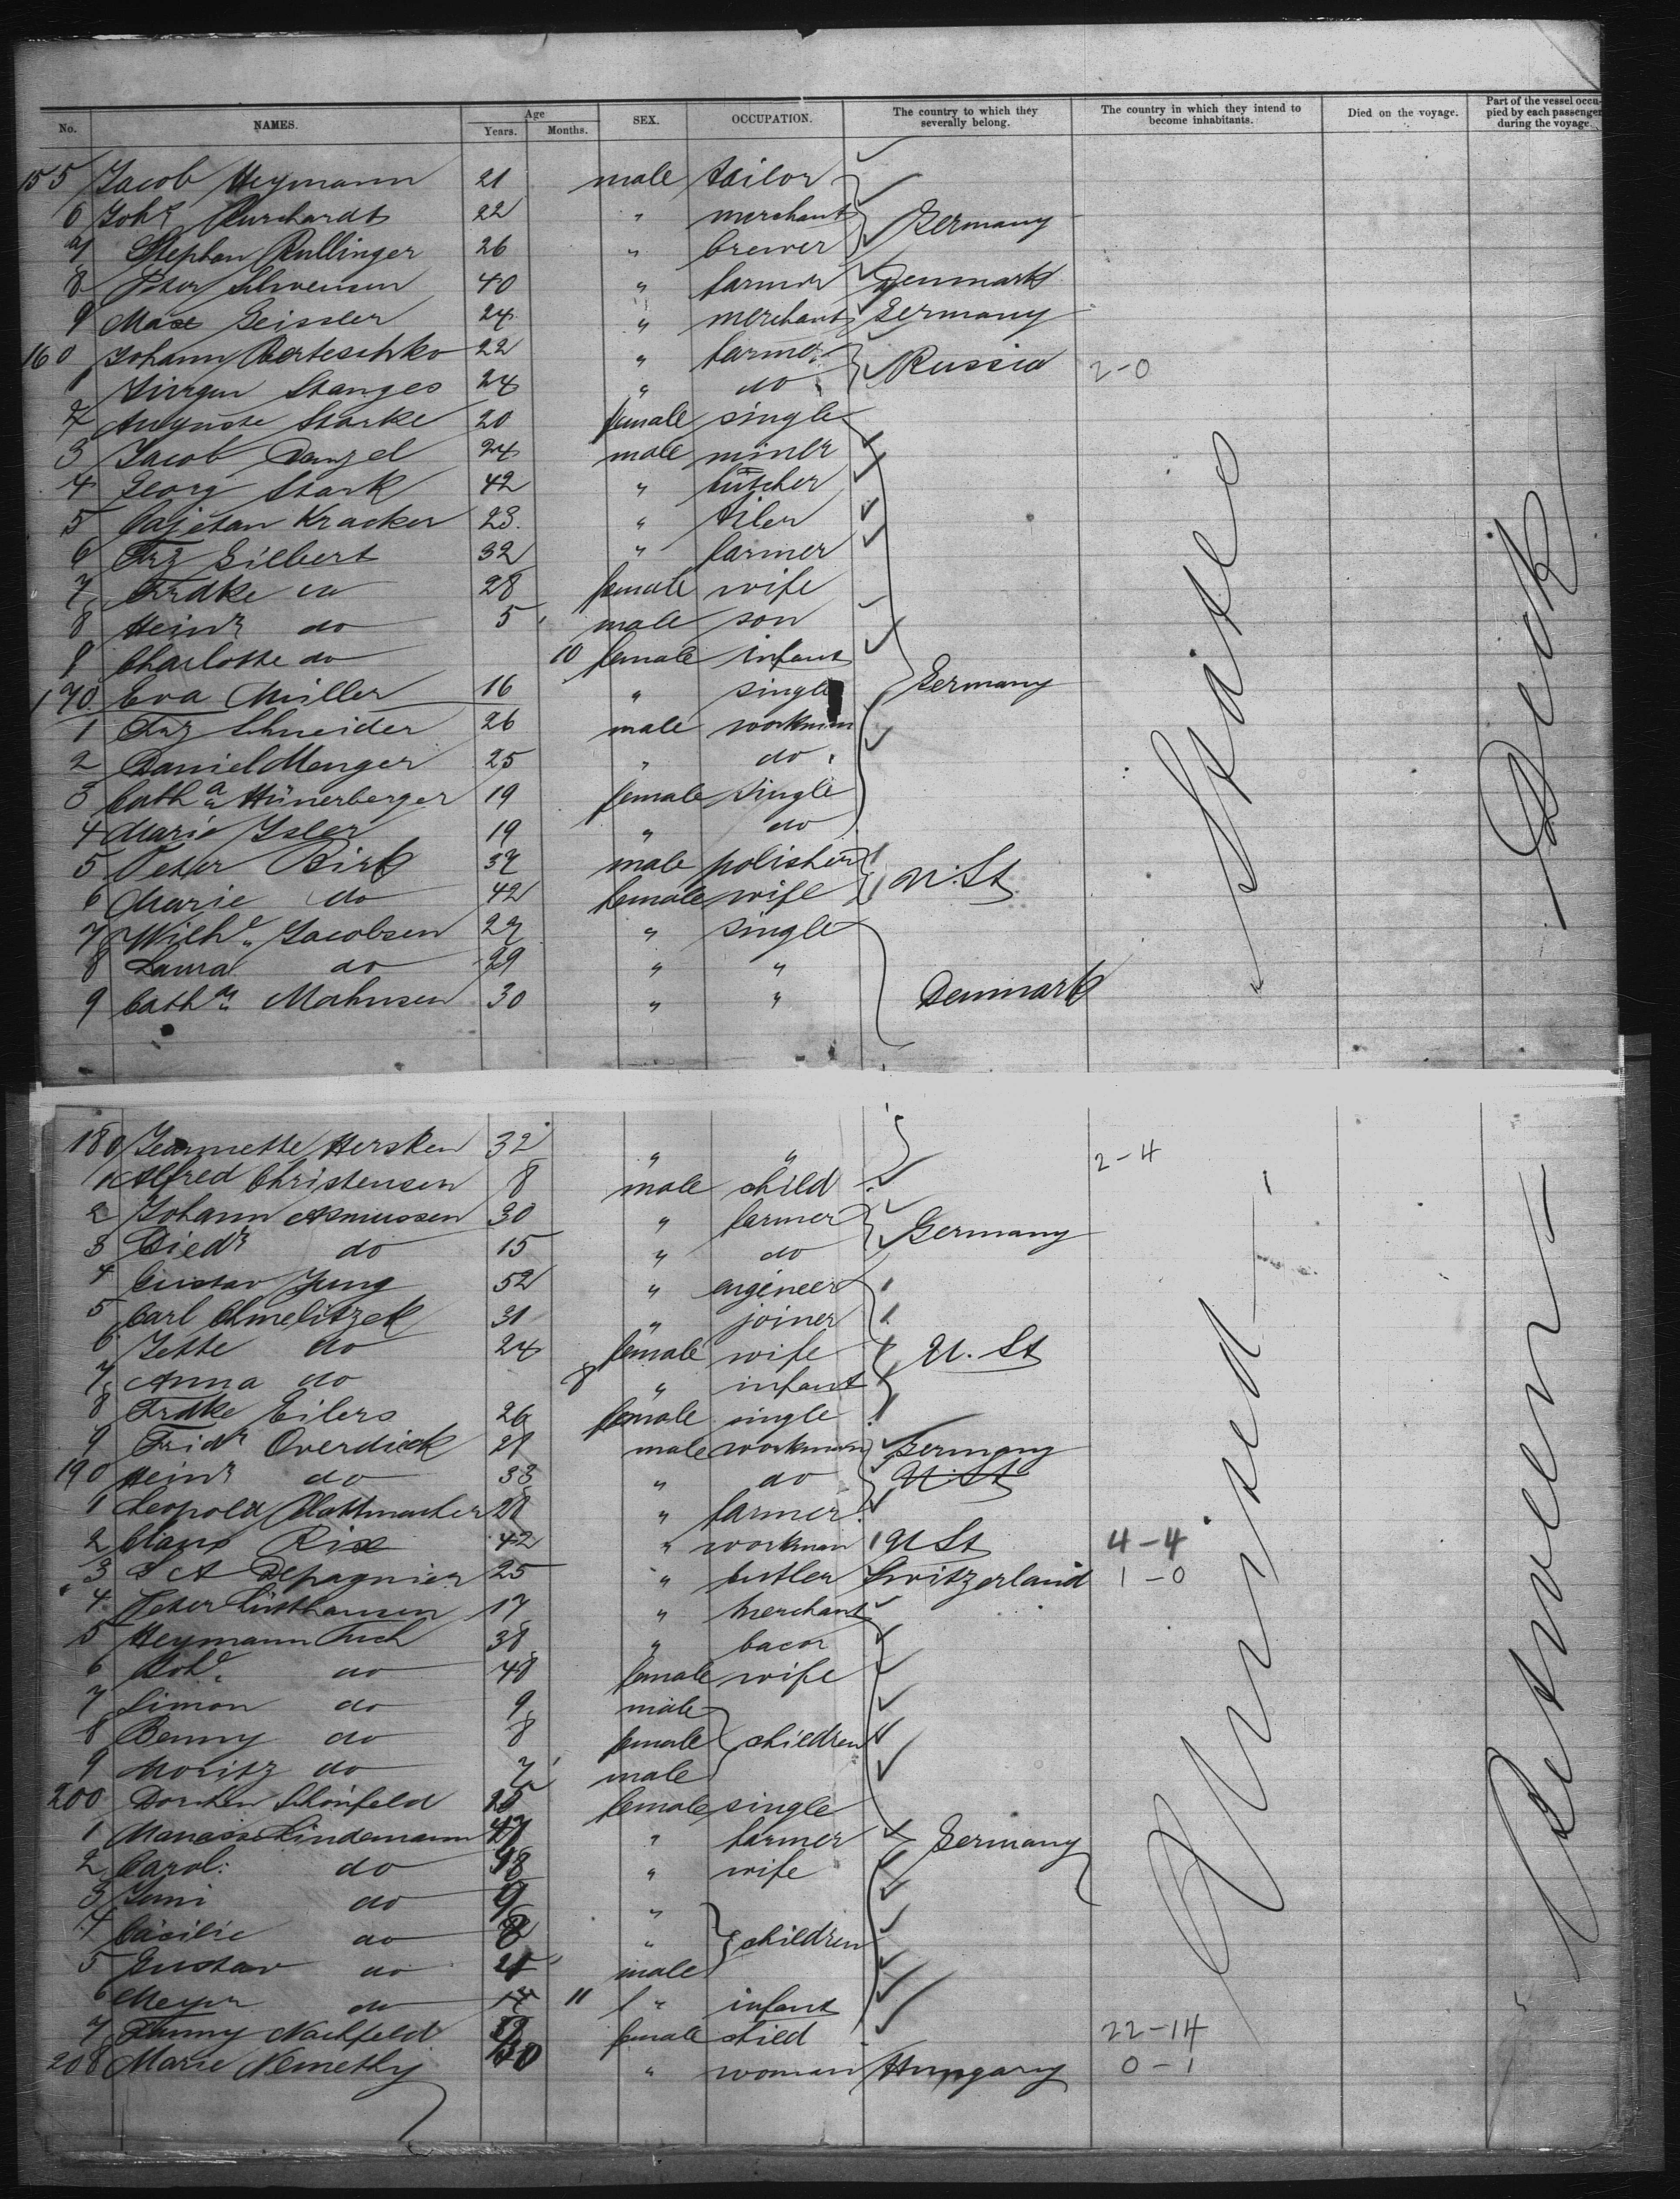 No. NAMES. Age Years. Months. SEX. OCCUPATION. The country to which they severally belong. The country in which they intend to become inhabitants. Died on the voyage. Part of the vessel occupied by each passenger during the voyage
155 Jacob Heymann 21 male tailor
6 Joh. Burchardt 22 " merchant Germany
7 Stephan Rullinger 26 " brewer
8 40 " farmer Denmark
9 Max Geissler 24 " merchant Germany
160 Johann 22 " farmer Russia 2-0
1 Stanges 24 " do
2 Auguste Starke 20 female single
3 Jacob Danzel 24 male miner
4 Georg Stark 42 " butcher
5 Cajetan Kracker 23. " tiler
6 Frz Gilbert 32 " farmer
7 Frdke do 28 female wife
8 Heinr do 5 male son
9 Charlotte do 10 female infant
170 Eva Müller 16 " single Germany
1 Frz Schneider 26 male workman
2 Daniel Menger 25 " do
3 Catha Hünerberger 19 female single
4 Marie Isler 19 " do
5 Peter Birk 37 male polisher U. St
6 Marie do 42 female wife
7 Wilhe Jacobsen 27 " single
8 Laura do 29 " "
9 Cathar Mahnsen 30 " " Denmark
180 Jeannette Hersken 32 " " 2-4
1 Alfred Christensen 8 male child
2 Johann Asmussen 30 " farmer Germany
3 Diedr do 15 " do
4 Gustav Jung 52 " engineer
5 Carl Chmelitzek 31 " joiner
6 Jette do 24 female wife U. St
7 Anna do 8 " infant
8 Frdke Eilers 26 female single
9 Fridr Overdieck 21 male workman Germany
190 Heinr do 33 " do U. St
1 Leopold 28 " farmer
2 Claus Rix 42 " workman U St 4-4
3 Depagnier 25 " butler Switzerland 1-0
4 Peter 17 " merchant
5 Heymann 38 " bacor
6 do 48 female wife
7 Simon do 9 male
8 Benny do 8 female children
9 Moritz do 7 male
200 Dorchen Schönfeld 25 female single
1 Manasse Lindemann 47 " farmer Germany
2 Carol: do 38 " wife
3 do 9 "
4 Cäcilie do 8 " children
5 Gustav do 4 male
6 Meyer do 11 " infant
7 Fanny Nachfeld female child 22-14
208 Marie Nemethy 30 " woman Hungary 0-1
United States
Between Deck